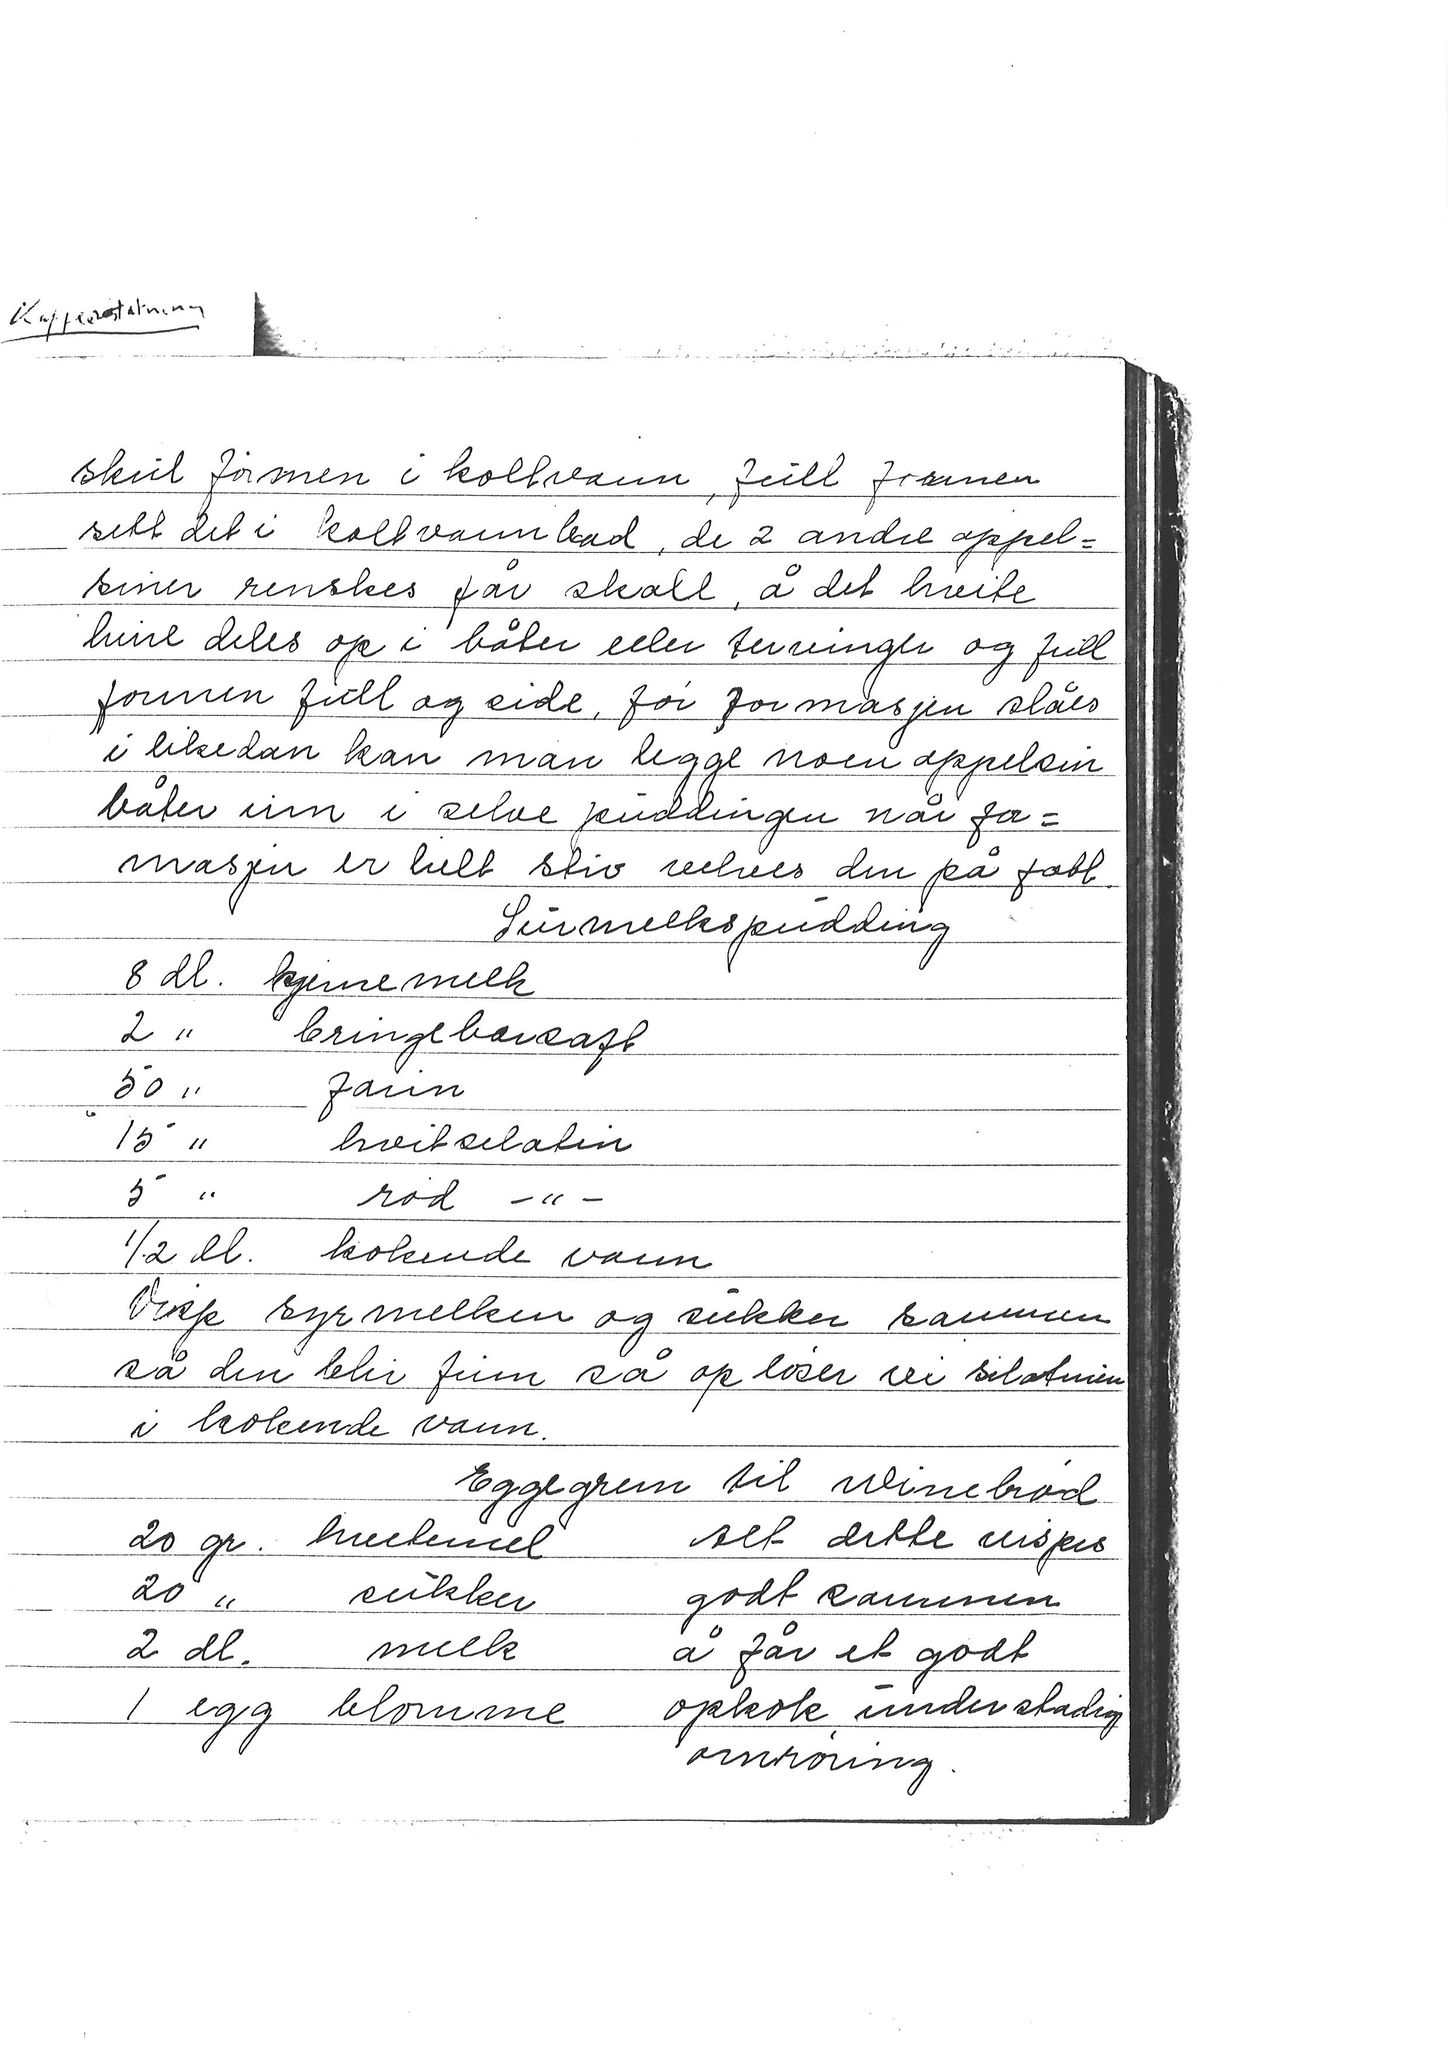 Kaffeerstatning
skül formen i koltvann, full formen
sett det i koltvannbad, de 2 andre appel=
siner renskes får skall, å det hvite
hine deles op i båter eller terninger og füll
formen füll og side, før formasjen slåes
i likedan kan man legge noen appelsin
båter inn i selve püddingen når for=
masjen er helt stiv velves den på fatt.
Sürmelkspüdding
8 dl. kjernemelk
2 " bringebærsaft
50 " farin
15 " hvitselatin
5 " rød - " -
1/2 dl. kokende vann
Visp syrmelken og sükker sammen
så den blir finn så op løser vi silatinen
i kokende vann.
Eggegrem til Winebrød
20 gr. hvetemel alt dette vispes
20 " sükker godt sammen
2 dl. melk å får et godt
1 egg blomme opkok ünder stadig
omrøring.